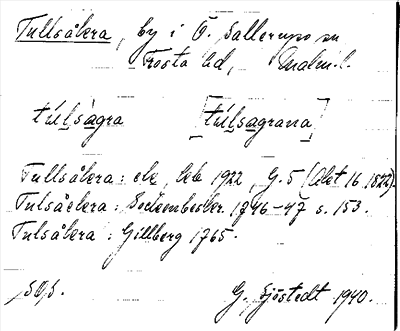 Tullsåkra, by i Ö. Sallerups sn
Frosta hd, Malm. l.
túlsàgra [túlsagrana]
Tullsåkra: ek, 1922, G. 5 (Akt 16 1822).
Tulsåckra: Södemb 1746-47 s. 153.
Tulsåkra: Gillberg 1765.
G. Sjöstedt 1940.